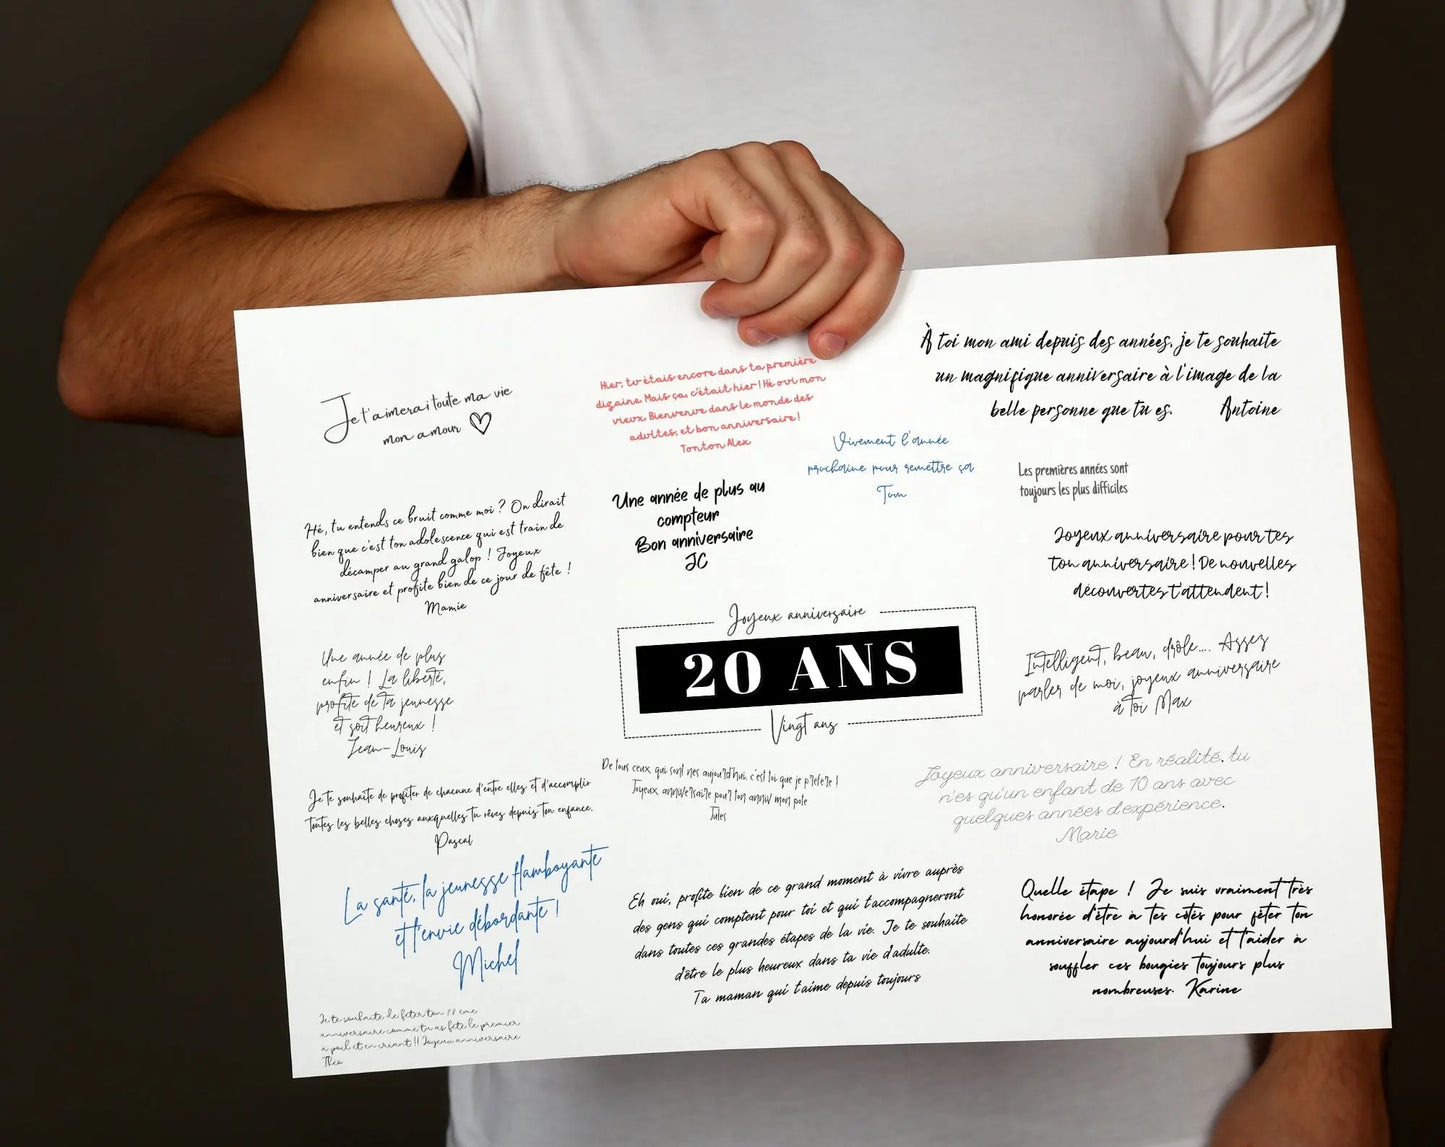 Je t'aimerai toute ma vie
mon amour
Hier, tu étais encore dans ta première
dizaine. Mais ça, c'était hier ! Hé oui mon
vieux. Bienvenue dans le monde des
adultes, et bon anniversaire !
Tonton Alex
À toi mon ami depuis des années, je te souhaite
un magnifique anniversaire à l'image de la
belle personne que tu es. Antoine
Vivement l'année
prochaine pour remettre ça
Tom
Les premières années sont
toujours les plus difficiles
Hé, tu entends ce bruit comme moi ? On dirait
bien que c'est ton adolescence qui est train de
décamper au grand galop ! Joyeux
anniversaire et profite bien de ce jour de fête !
Mamie
Une année de plus au
compteur
Bon anniversaire
JC
Joyeux anniversaire pour tes
ton anniversaire ! De nouvelles
découvertes t'attendent !
Une année de plus
enfin ! La liberté,
profite de ta jeunesse
et soit heureux !
Jean-Louis
Joyeux anniversaire
20 ANS
Vingt ans
Intelligent, beau, drôle.... Assez
parler de moi, joyeux anniversaire
à toi Max
Je te souhaite de profiter de chacune d'entre elles et d'accomplir
toutes les belles choses auxquelles tu rêves depuis ton enfance.
Pascal
De tous ceux qui sont nes aujourd'hui, c'est toi que je préfère !
Joyeux anniversaire pour ton anniv mon pote
Jules
Joyeux anniversaire ! En réalité, tu
n'es qu'un enfant de 10 ans avec
quelques années d'expérience.
Marie
La santé, la jeunesse flamboyante
et l'envie débordante !
Michel
Eh oui, profite bien de ce grand moment à vivre auprès
des gens qui comptent pour toi et qui t'accompagneront
dans toutes ces grandes étapes de la vie. Je te souhaite
d'être le plus heureux dans ta vie d'adulte.
Ta maman qui t'aime depuis toujours
Quelle étape ! Je suis vraiment très
honorée d'être à tes côtés pour fêter ton
anniversaire aujourd'hui et t'aider à
souffler ces bougies toujours plus
nombreuses. Karine
Je te souhaite de fêter ton
anniversaire comme tu as fêté le premier
à poil et en criant !! Joyeux anniversaire
Théo